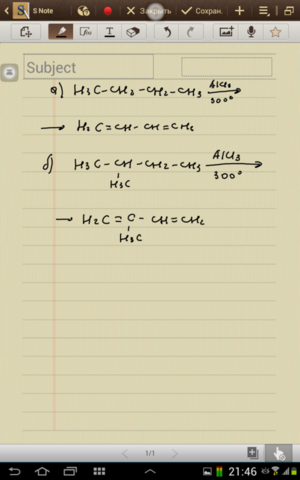 S Note
Закрыть
Сохран.
Subject
а) H₃C-CH₂-CH₂-CH₃ AlCl₃ 300°
→ H₂C=CH-CH=CH₂
б) H₃C-CH-CH₂-CH₃ AlCl₃ 300°
H₃C
→ H₂C=C-CH=CH₂
H₃C
1/1
21:46